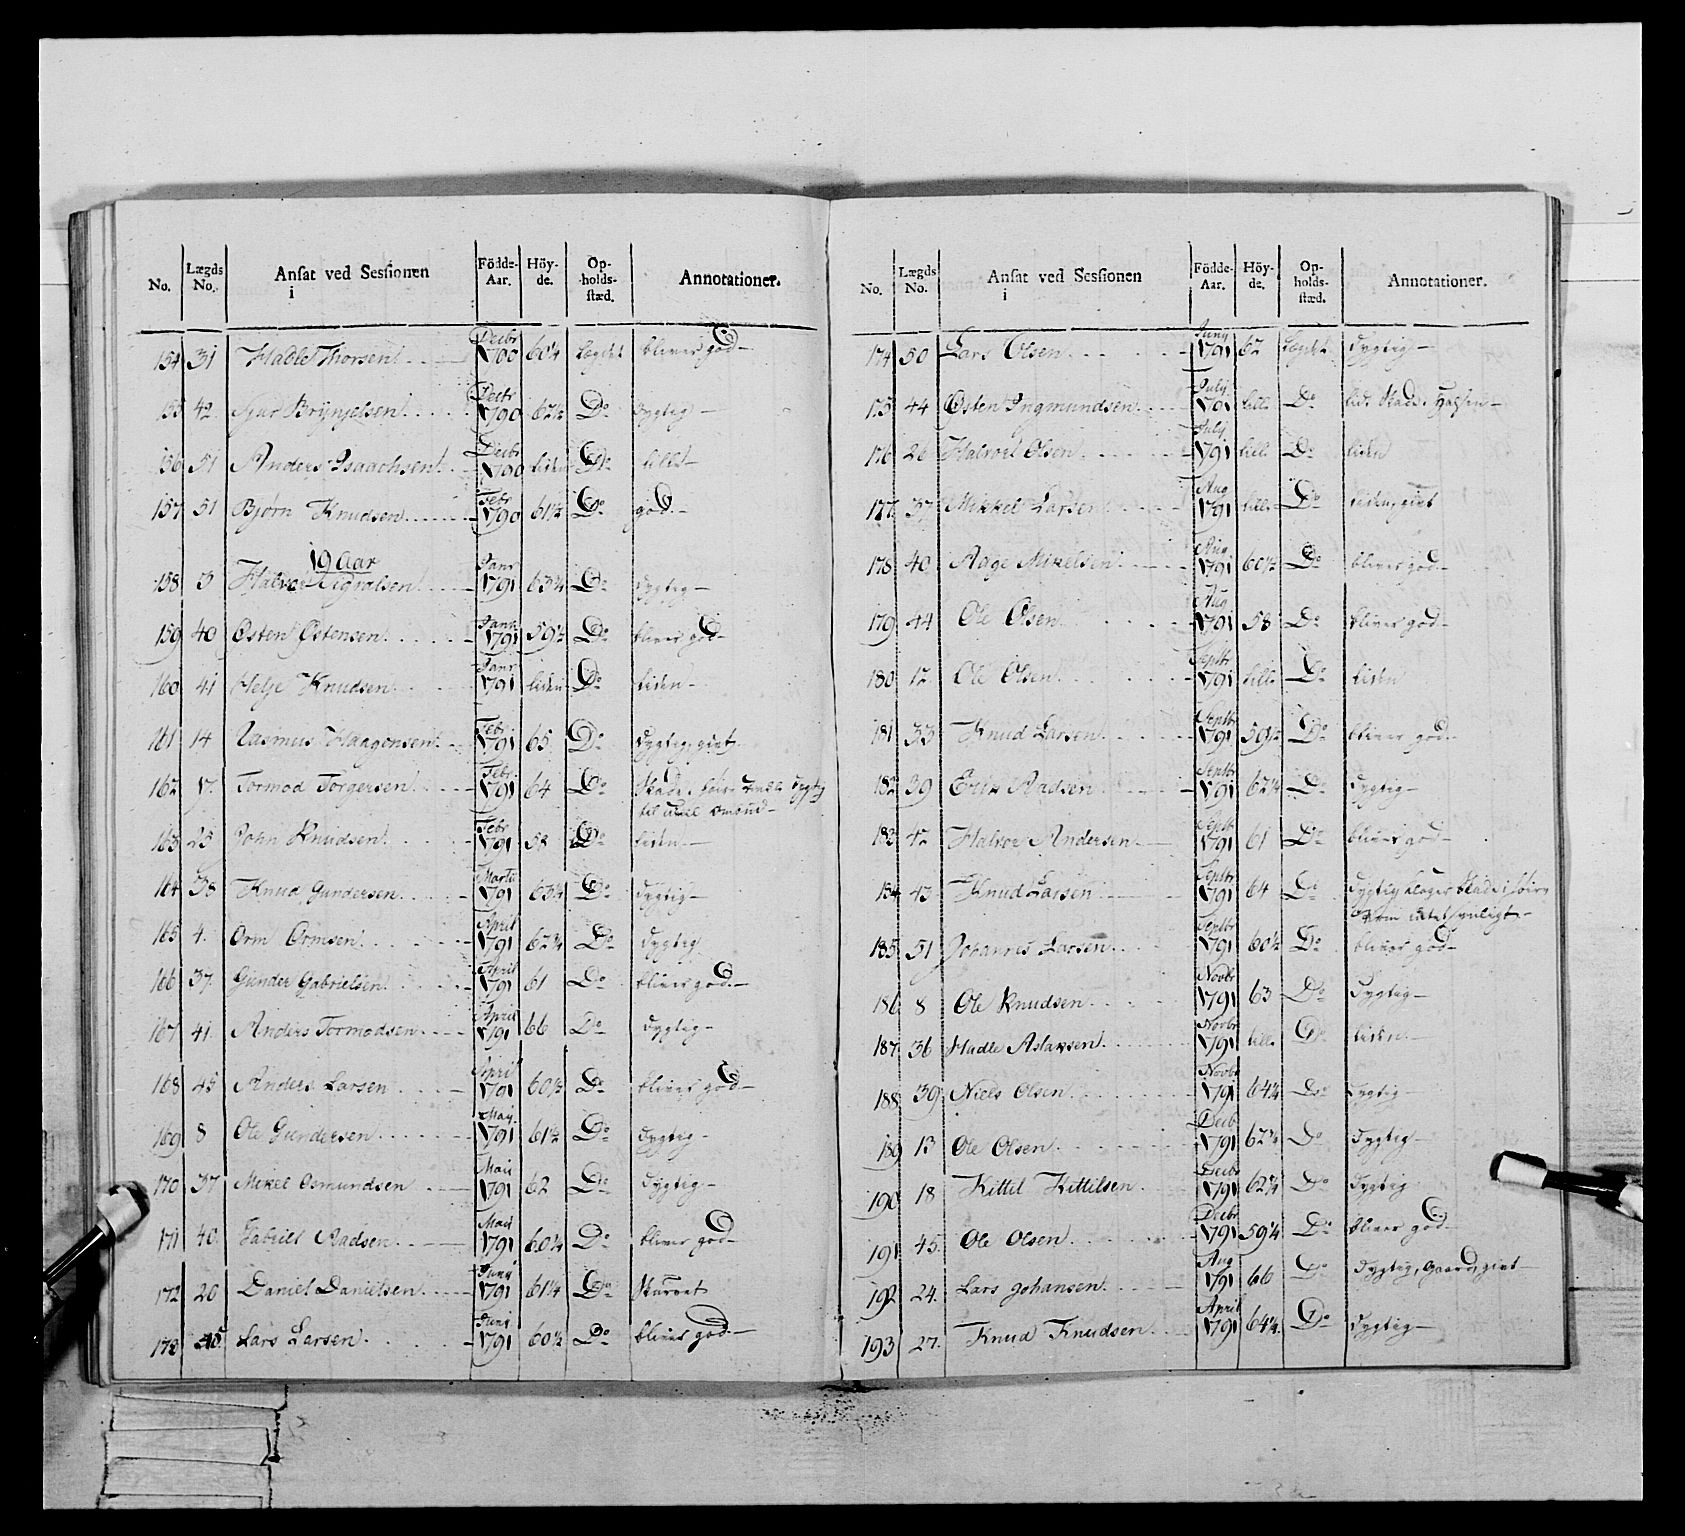 No. Lægds No. Ansat ved Sessionen i Födde-Aar. Höy-de. Op-holds-stæd. Annotationer.
154 31 Hadle Thorsen Decbr 1790 60¼ Legdet bliver god
155 42 Brÿnjelsen Decbr 1790 62½ Do dygtig
156 51 Anders Isaachsen Decbr 1790 liden Do lille
157 51 Bjørn Knudsen Febr 1790 61½ Do god
19 Aar
158 3 Halvor Janr 1791 63¾ Do dygtig
159 40 Østen Østensen Janr 1791 59½ Do bliver god
160 41 Helje Knudsen Janr 1791 liden Do liden
161 14 Rasmus Haagensen Febr 1791 65 Do dygtig, givt
162 17 Tormod Torgersen Febr 1791 64 Do Skade i dygtig
til
163 25 John Knudsen Febr 1791 58 Do liden
164 38 Knud Gundersen Marti 1791 63¼ Do dygtig
165 4 Orm Ormsen April 1791 62¾ Do dygtig
166 37 Gunder Gabrielsen April 1791 61 Do bliver god
167 41 Anders Tormodsen April 1791 66 Do dygtig
168 45 Anders Larsen April 1791 60½ Do bliver god
169 8 Ole Gundersen Maij 1791 61½ Do dygtig
170 37 Mikel Osmundsen Maij 1791 62 Do dygtig
171 40 Gabriel Aadsen Maij 1791 60¼ Do bliver god
172 20 Daniel Danielsen Junij 1791 61¼ Do Skurvet
173 Lars Larsen Junij 1791 60½ Do bliver god
No. Lægds No. Ansat ved Sessionen i Födde-Aar. Höy-de. Op-holds-stæd. Annotationer.
174 50 Lars Olsen Junij 1791 62 Legdet dygtig
175 44 Østen Ingmundsen Julij 1791 lille Do
176 26 Halvor Olsen Julij 1791 lille Do liden
177 37 Mikkel Larsen Aug 1791 lille Do liden, givt
178 40 Aage Mikelsen Aug 1791 60½ Do bliver god
179 44 Ole Olsen Aug 1791 58 Do bliver god
180 12 Ole Olsen Septbr 1791 lille Do liden
181 33 Knud Larsen Septbr 1791 59½ Do bliver god
182 39 Erik Aadsen Septbr 1791 62¼ Do dygtig
183 42 Halvor Andersen Septbr 1791 61 Do bliver god
184 43 Knud Larsen Septbr 1791 64 Do dygtig klager Skade i
som
185 51 Johannes Larsen Septbr 1791 60½ Do bliver god
186 8 Ole Knudsen Novbr 1791 63 Do dygtig
187 36 Hadle Aslaksen Novbr 1791 lille Do liden
188 39 Niels Olsen Novbr 1791 64¼ Do dygtig
189 13 Ole Olsen Decbr 1791 62¾ Do dygtig
190 18 Kittil Kittilsen Decbr 1791 62¾ Do dygtig
191 45 Ole Olsen Decbr 1791 59¼ Do bliver god
192 24 Lars Johansen Aug 1791 66 Do dygtig, givt
193 27 Knud Knudsen April 1791 64¼ Do dygtig